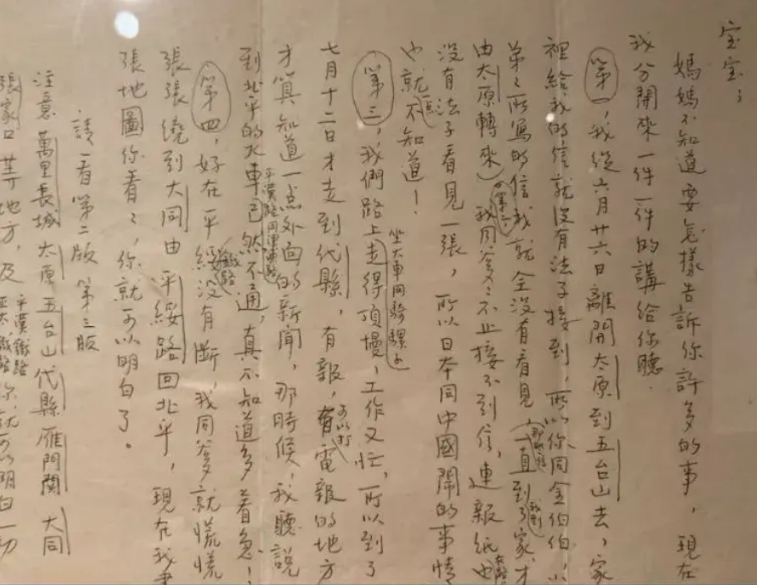 宝宝；
媽媽不知道要怎樣告訴你許多的事，現在
我分開來一件一件的講給你聽．
第一，我從六月廿六日離開太原到五台山去，家
裡給我的信就沒有法子接到，所以你同金伯伯，小
弟弟所寫的信，我就全沒有看見（那些信一直到我到了家，才
由太原轉來）。第二，我同爹爹不止接不到信，連報紙也
沒有法子看見一張，所以日本同中國鬧的事情
也就一點不知道！
第三，我們路上坐大車同騎騾子，走得頂慢，工作又忙，所以到了
七月十二日才走到代縣，有報，可以打電報的地方
才算知道一点外面的新聞，那時候，我聽說
到北平的火車平漢路同已然不通，真不知道多着急！
第四，好在平綏鐵路沒有斷，我同爹爹就慌慌
張張繞到大同由平綏路回北平，現在我
張地圖你看看，你就可以明白了。
請看第二版 第三版
注意萬里長城 太原 五台山 代縣 雁門關 大同
張家口等地方，及平漢鐵路 你就可以明白一切